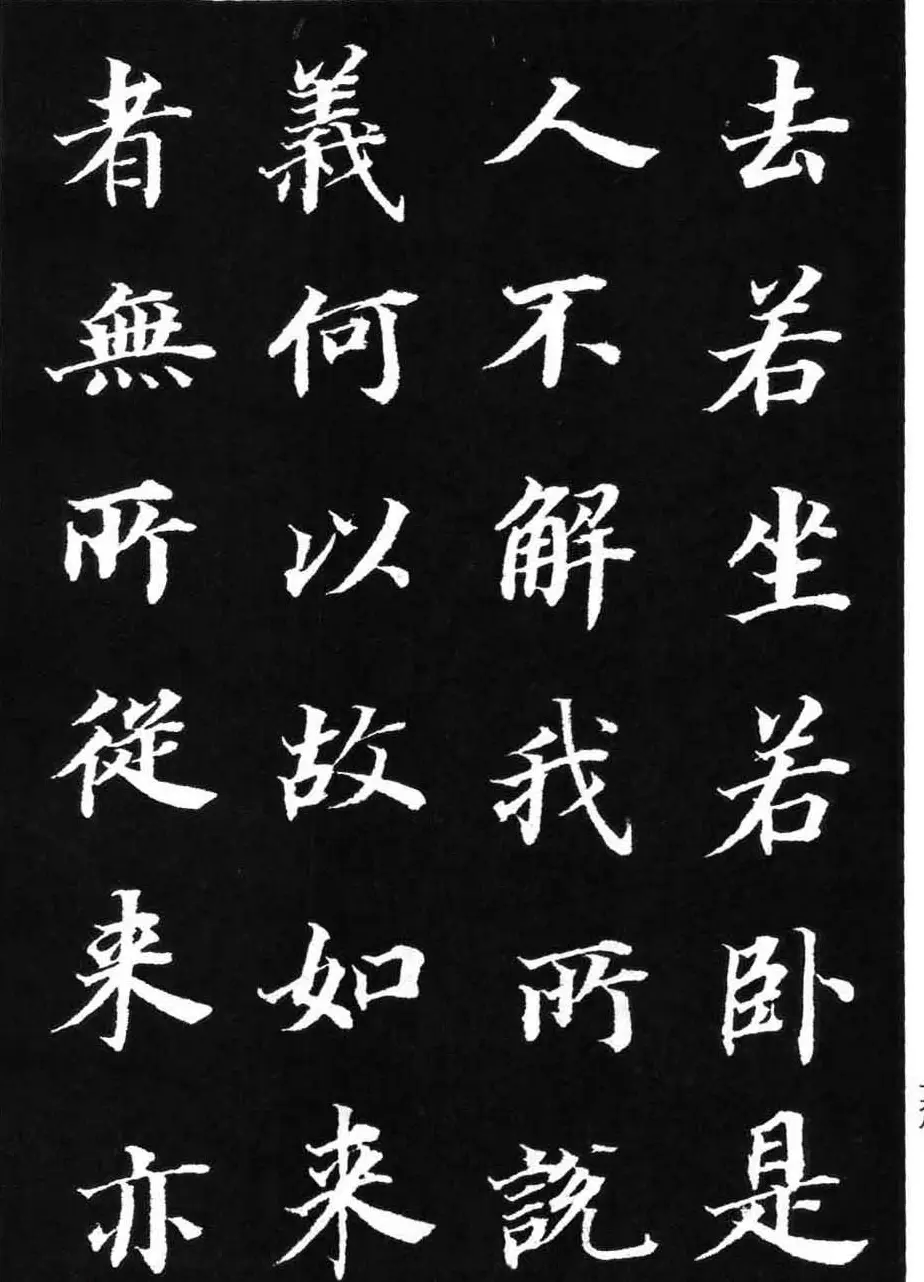 去若坐若卧是
人不解我所說
義何以故如来
者無所從来亦